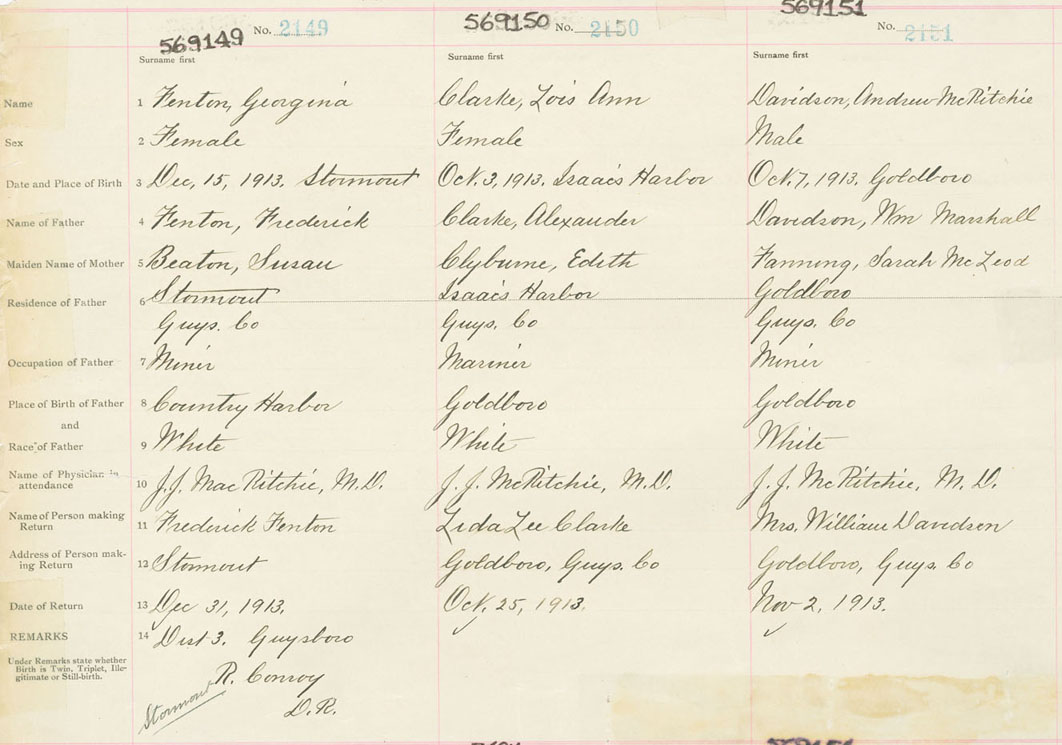 569149 No. 2149 569150 No. 2150 569151 No. 2151
Surname first Surname first Surname first
Name 1 Fenton, Georgina Clarke, Lois Ann Davidson, Andrew McRitchie
Sex 2 Female Female Male
Date and Place of Birth 3 Dec, 15, 1913. Stormont Oct. 3, 1913. Isaac's Harbor Oct. 7, 1913. Goldboro
Name of Father 4 Fenton, Frederick Clarke, Alexander Davidson, Wm Marshall
Maiden Name of Mother 5 Beaton, Susan Clyburne, Edith Fanning, Sarah McLeod
Residence of Father 6 Stormont Isaac's Harbor Goldboro
Guys. Co Guys. Co Guys. Co
Occupation of Father 7 Miner Mariner Miner
Place of Birth of Father 8 Country Harbor Goldboro Goldboro
and
Race of Father 9 White White White
Name of Physician in
attendance 10 J.J. MacRitchie, M.D. J. J. McRitchie, M.D. J. J. McRitchie, M. D.
Name of Person making
Return 11 Frederick Fenton Lida Lee Clarke Mrs. William Davidson
Address of Person mak-
ing Return 12 Stormont Goldboro, Guys. Co Goldboro, Guys. Co
Date of Return 13 Dec 31, 1913. Oct. 25, 1913. Nov 2, 1913.
REMARKS 14 Dist 3. Guysboro
Under Remarks state whether
Birth is Twin, Triplet, Ille-
gitimate or Still-birth.
R. Conroy
Stormont D.R.